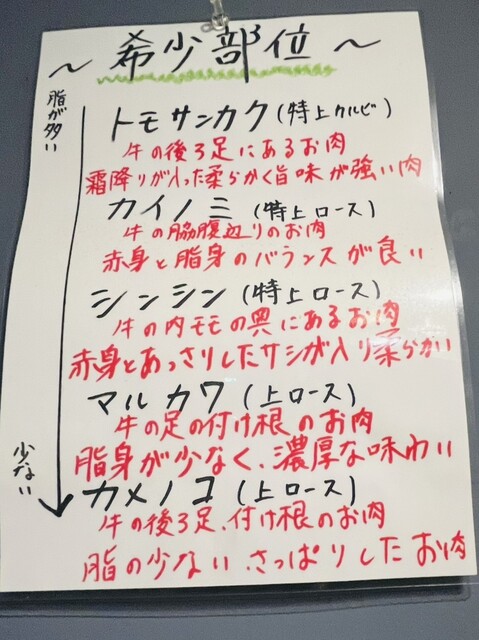 ～希少部位～
脂が多い
トモサンカク(特上カルビ)
牛の後ろ足にあるお肉
霜降りが入った柔らかく旨味が強い肉
カイノミ(特上ロース)
牛の脇腹辺りのお肉
赤身と脂身のバランスが良い
シンシン(特上ロース)
牛の内モモの奥にあるお肉
赤身とあっさりしたサシが入り柔らかい
マルカワ(上ロース)
牛の足の付け根のお肉
脂身が少なく、濃厚な味わい
少ない
カメノコ(上ロース)
牛の後ろ足、付け根のお肉
脂の少ない、さっぱりしたお肉